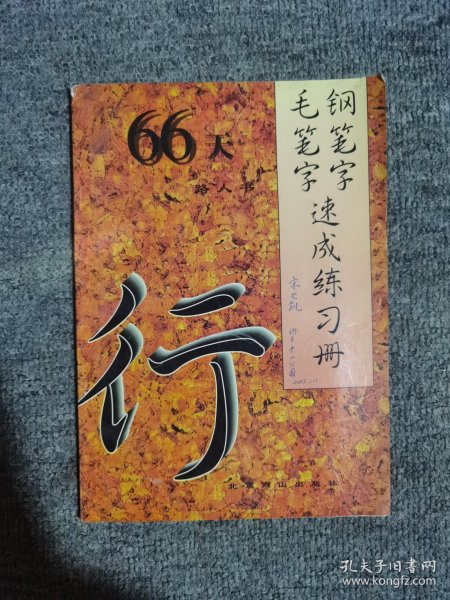 66天
路人书
钢笔字
毛笔字
速成练习册
行
北京燕山出版社
孔夫子旧书网
www.kongfz.com